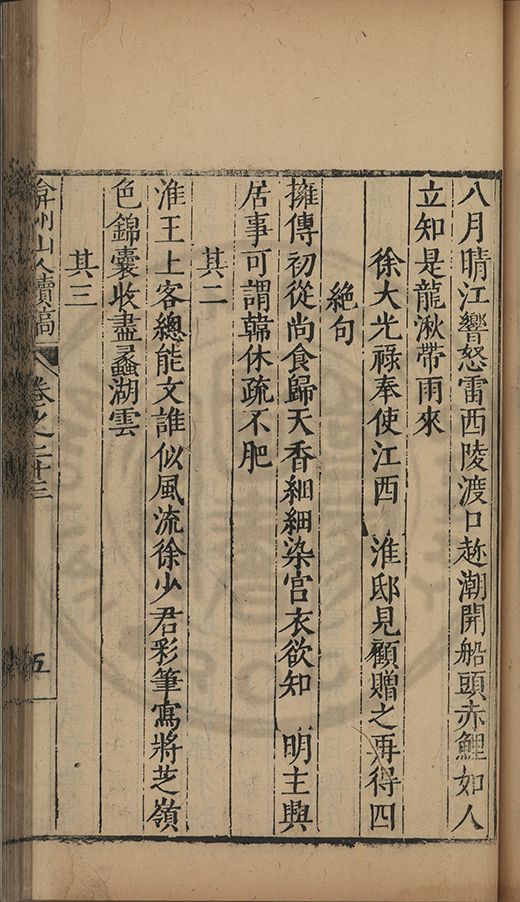 八月晴江響怒雷西陵渡口趂潮開船頭赤鯉如人
立知是龍湫帶雨來
徐大光祿奉使江西 淮邸見顧贈之再得四
絕句
擁傳初從尚食歸天香細細染宮衣欲知 明主興
居事可謂韓休疏不肥
其二
淮王上客總能文誰似風流徐少君彩筆寫將芝嶺
色錦囊收盡蠡湖雲
其三
弇州山人續稿 卷之二十三 五